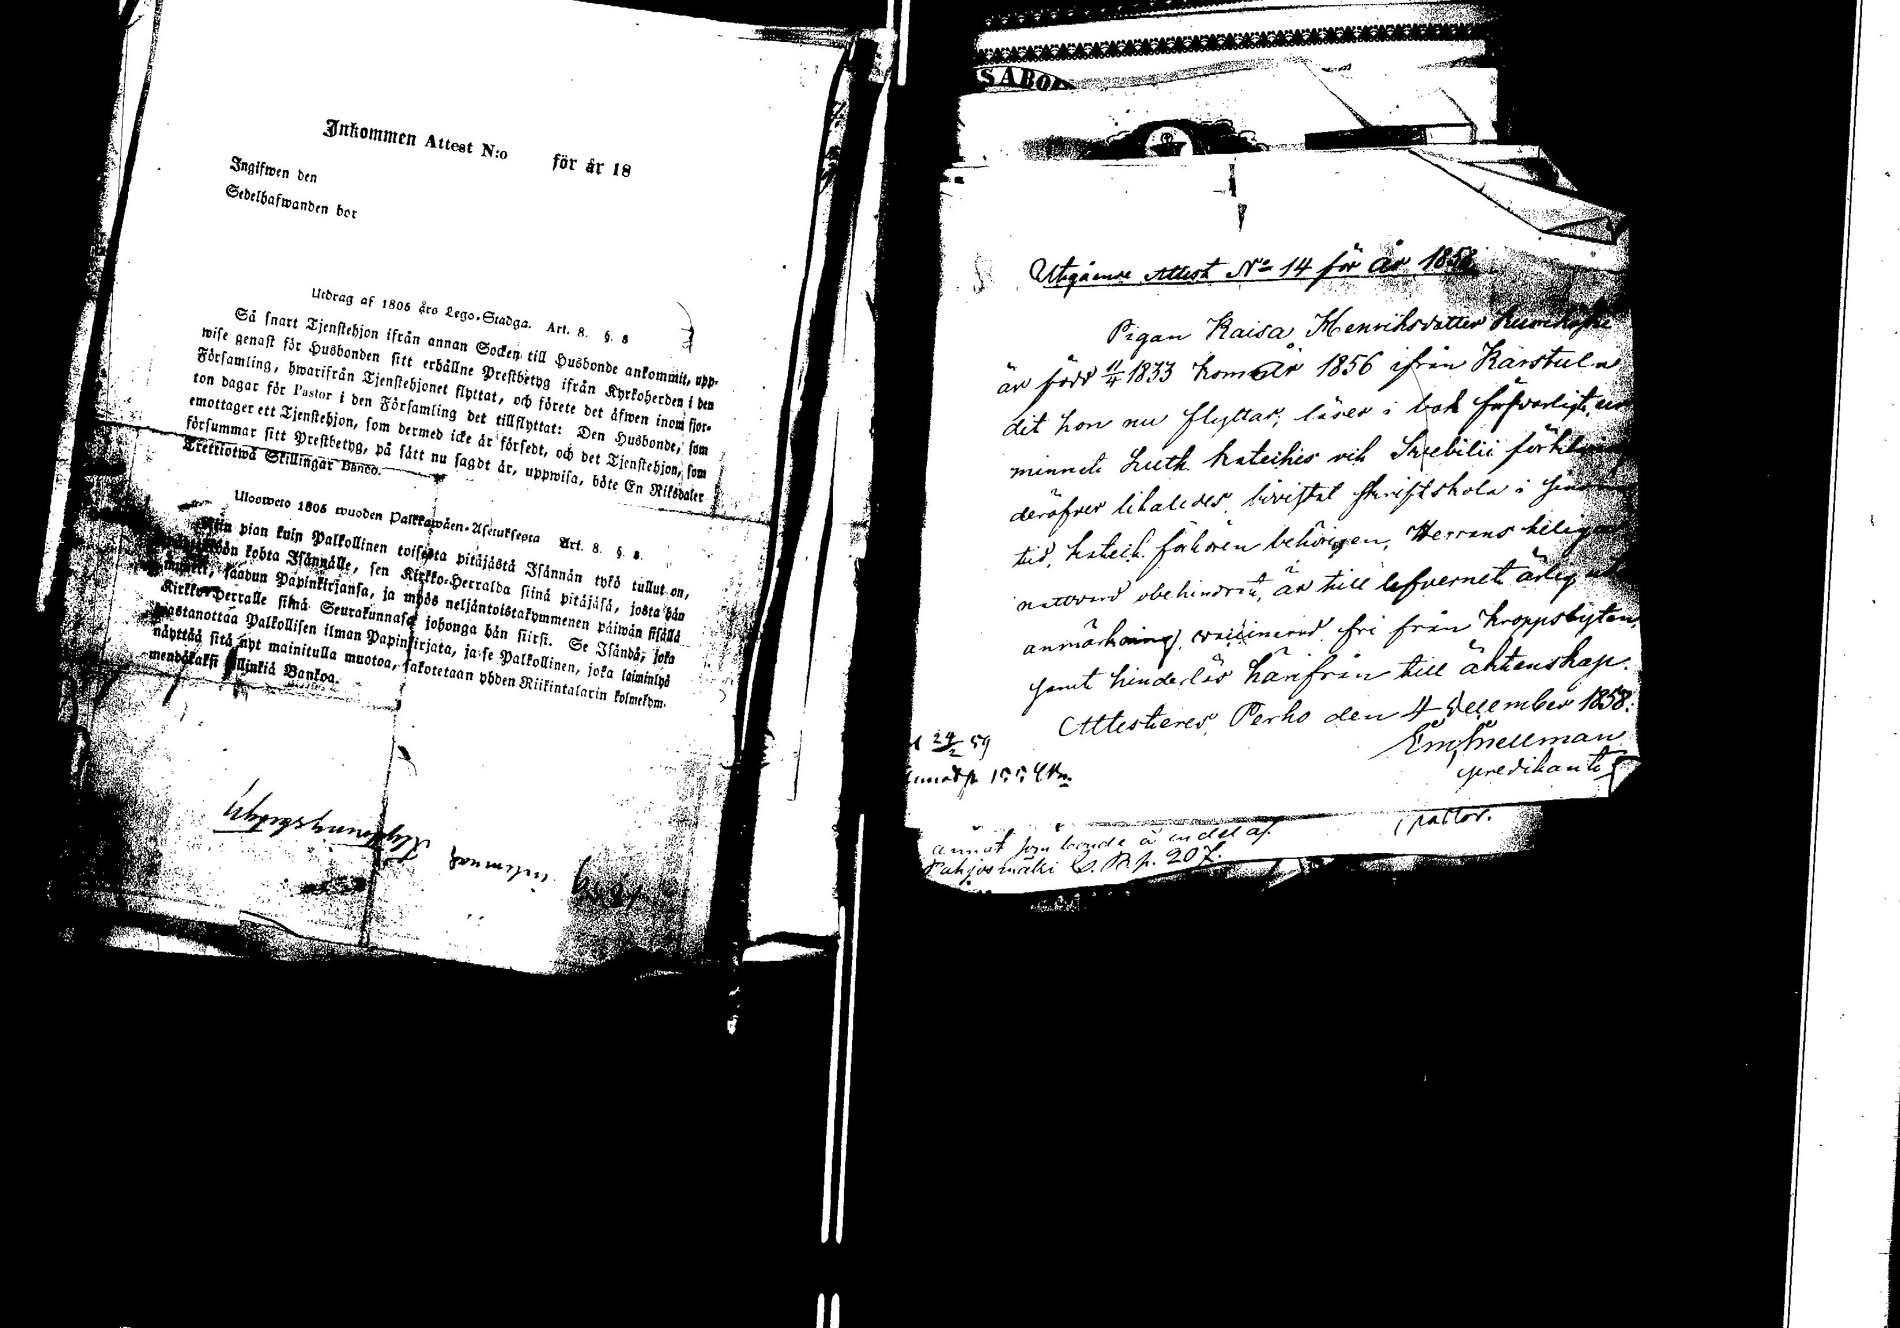 Inkommen Attest N:o för år 18
Ingifwen den
Sedelhafwanden bor
Utdrag af 1805 års Lego-Stadga. Art. 8. §. 8
Så snart Tjenstehjon ifrån annan Socken till Husbonde ankommit, upp-
wise genast för Husbonden sitt erhållne Prestbetyg ifrån Kyrkoherden i den
Församling, hwarifrån Tjenstehjonet flyttat, och förete det äfwen inom fjor-
ton dagar för Pastor i den Församling det tillflyttat: Den Husbonde, som
emottager ett Tjenstehjon, som dermed icke är försedt, och det Tjenstehjon, som
försummar sitt Prestbetyg, på sätt nu sagdt är, uppwisa, böte En Riksdaler
Trettiotwå Skillingar Banco.
Ulosweto 1805 wuoden Palkkawäen-Asetuksesta Art. 8. §. 8.
Niin pian kuin Palkollinen toisesta pitäjästä Isännän tykö tullut on,
kohta Isännälle, sen Kirkko-Herralda siinä pitäjäsä, josta hän
saadun Papinkirjansa, ja myös neljäntoistakymmenen päiwän sisällä
Kirkko-Herralle siinä Seurakunnasa johonga hän siirsi. Se Isändä, joka
wastanottaa Palkollisen ilman Papinkirjata, ja se Palkollinen, joka laiminlyö
näyttää sitä nyt mainitulla muotoa, sakotetaan yhden Riikintalarin kolmekym-
mendäkaksi Killinkiä Bankoa.
Flyttningsbetyg
SABO
Utgående Attest No 14 för år 1858.
Pigan Kaisa Henriksdotter
är född 11/4 1833 kom år 1856 ifrån Karstula
dit hon nu flyttar, läser i bok försvarligt,
minnet Luth. kateches och Svebilii
deröfver likaledes, bivistat skriftskola i
tid, katech. förhören behörigen, Herrans
nattvard obehindrat, är till lefvernet ärlig
anmärkning, vaccinerad, fri från kroppslyten,
samt hinderlös härifrån till äktenskap.
Attesteras, Perho den 4 December 1858.
Em. Snellman
predikant
24/2 59
i pastor.
annat som bonde
p. 207.